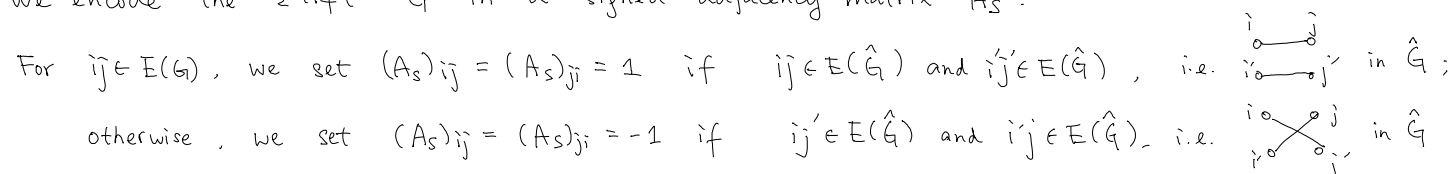 we encode the 2-lift Ĝ in a signed adjacency matrix A_S.
For ij ∈ E(G), we set (A_S)_ij = (A_S)_ji = 1 if ij ∈ E(Ĝ) and i'j' ∈ E(Ĝ), i.e. i j i' j' in Ĝ;
otherwise, we set (A_S)_ij = (A_S)_ji = -1 if ij' ∈ E(Ĝ) and i'j ∈ E(Ĝ), i.e. i j i' j' in Ĝ